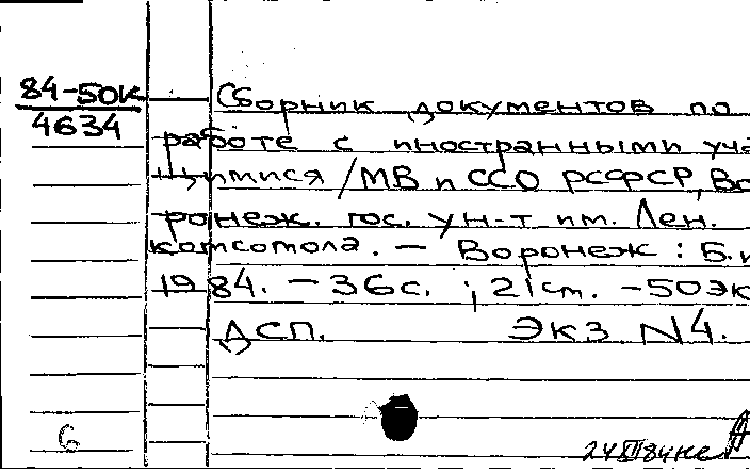 84-50К
4634
Сборник документов по
работе с иностранными уча
щимися /МВ и ССО РСФСР, Во
ронеж. гос. ун-т им. Лен.
комсомола. — Воронеж : Б.и
1984. — 36с. ; 21см. — 50эк
ДСП. Экз N4.
6
24 XII 84